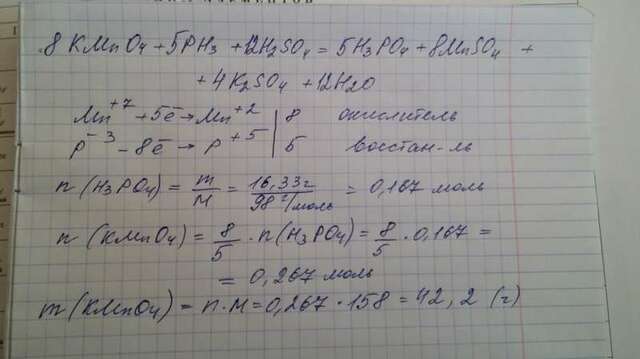 8 KMnO4 + 5PH3 + 12H2SO4 = 5H3PO4 + 8MnSO4 +
+ 4K2SO4 + 12H2O
Mn⁺⁷ + 5ē → Mn⁺² | 8 окислитель
P⁻³ - 8ē → P⁺⁵ | 5 восстан-ль
n (H3PO4) = m/M = 16,33г / 98 г/моль = 0,167 моль
n (KMnO4) = 8/5 · n(H3PO4) = 8/5 · 0,167 =
= 0,267 моль
m (KMnO4) = n·M = 0,267 · 158 = 42,2 (г)